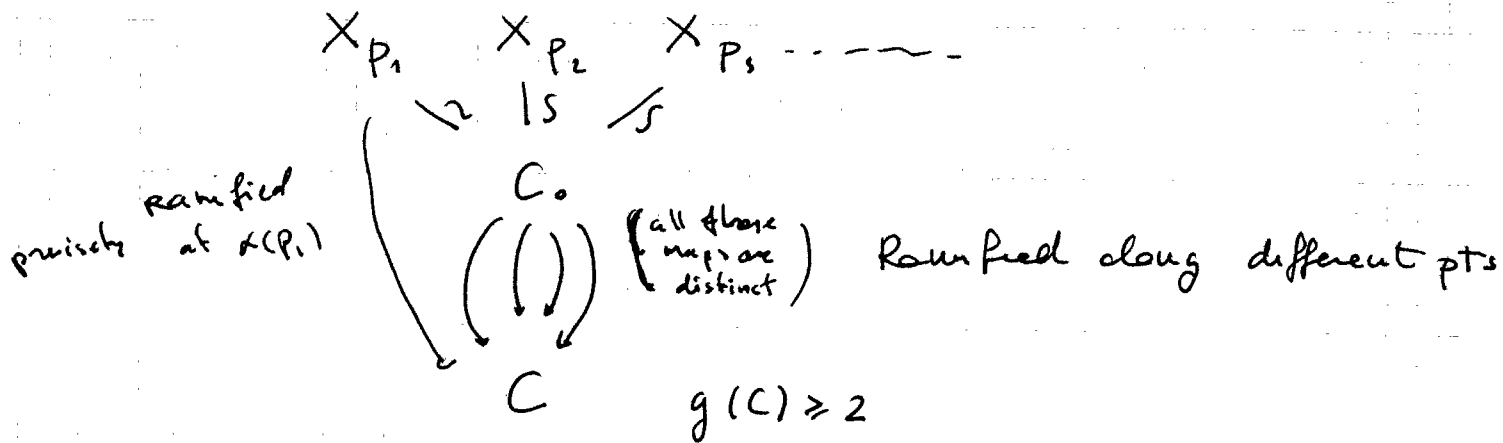 X_{P_1} X_{P_2} X_{P_3} -----
\wr |S /S
C_0
ramified
precisely at α(P_1)
(all these maps are distinct) Ramified along different pts
C g(C) ≥ 2